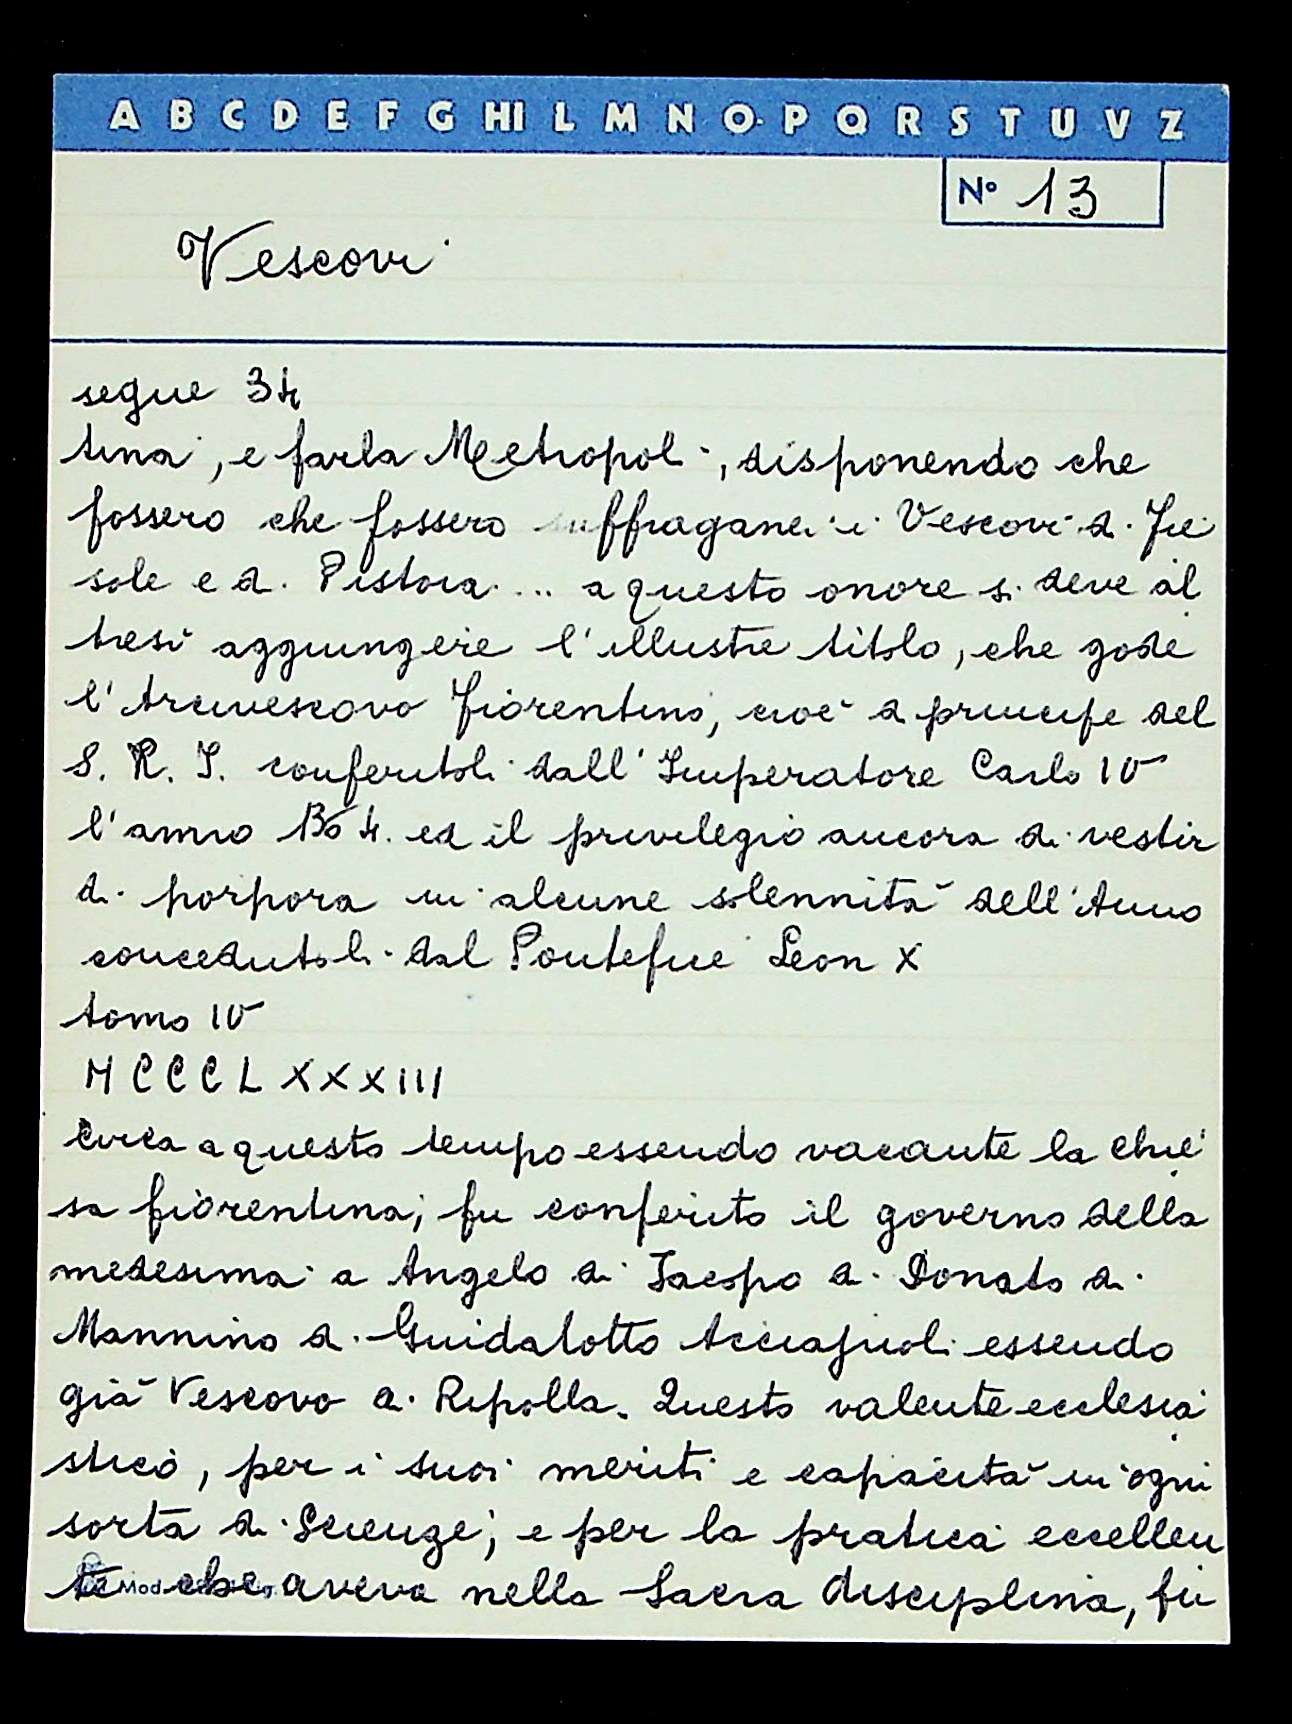 A B C D E F G HI L M N O P Q R S T U V Z
N° 13
Vescovi
segue 34
tina, e farla Metropoli, disponendo che
fossero che fossero suffraganei i Vescovi di Fie
sole e di Pistoia ... a questo onore si deve al
tresì aggiungere l'illustre titolo, che gode
l'Arcivescovo Fiorentino, cioè di principe del
S. R. I. conferitoli dall'Imperatore Carlo IV
l'anno 1364. ed il privilegio ancora di vestir
di porpora in alcune solennità dell'Anno
concedutoli dal Pontefice Leon X
tomo IV
MCCCLXXXIII
Circa a questo tempo essendo vacante la chie
sa fiorentina; fu conferito il governo della
medesima a Angelo di Iacopo di Donato di
Mannino di Guidalotto Acciaiuoli essendo
già Vescovo di Rapolla. Questo valente ecclesia
stico, per i suoi meriti e capacità in ogni
sorta di Scienze; e per la pratica eccellen
te che aveva nella Sacra disciplina, fu
Mod.